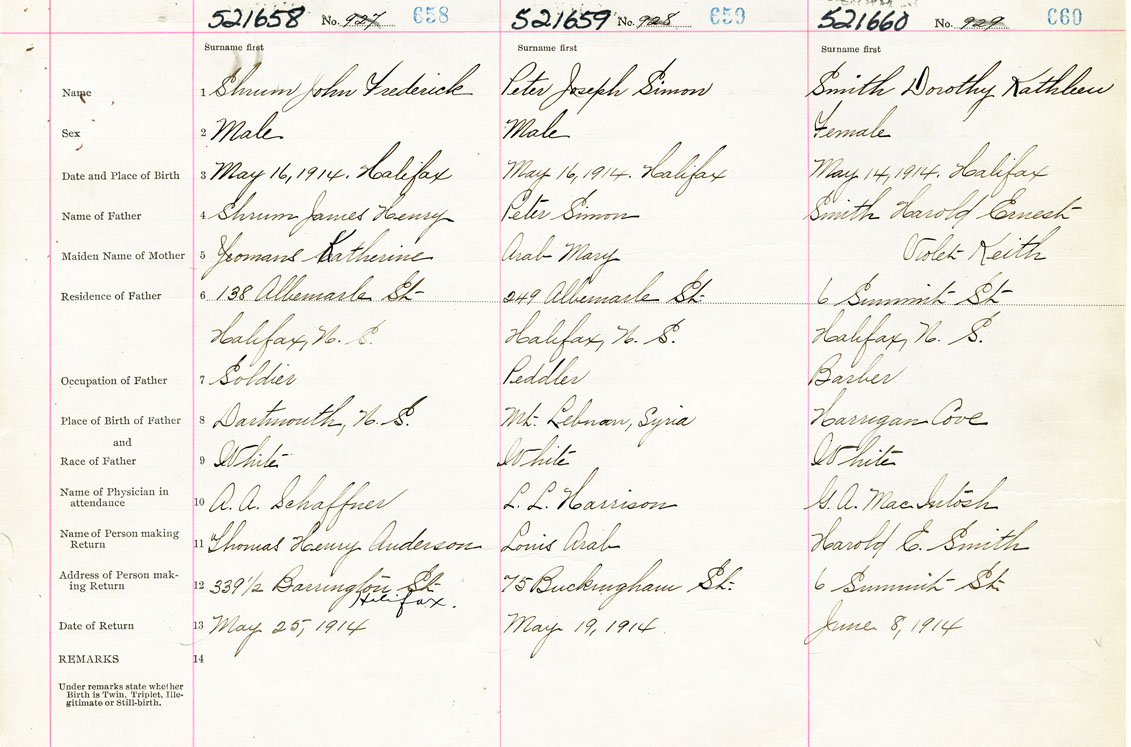 521658 No. 927 658 521659 No. 928 659 521660 No. 929 660
Surname first Surname first Surname first
Name 1 Shrum John Frederick Peter Joseph Simon Smith Dorothy Kathleen
Sex 2 Male Male Female
Date and Place of Birth 3 May 16, 1914. Halifax May 16, 1914. Halifax May 14, 1914. Halifax
Name of Father 4 Shrum James Henry Peter Simon Smith Harold Ernest
Maiden Name of Mother 5 Yeomans Katherine Arab Mary Violet Keith
Residence of Father 6 138 Albemarle St. 249 Albemarle St. 6 Summit St.
Halifax, N. S. Halifax, N. S. Halifax, N. S.
Occupation of Father 7 Soldier Peddler Barber
Place of Birth of Father 8 Dartmouth, N. S. Mt. Lebnon, Syria Harrigan Cove
and
Race of Father 9 White White White
Name of Physician in
attendance 10 A. A. Schaffner L. L. Harrison G. A. MacIntosh
Name of Person making
Return 11 Thomas Henry Anderson Louis Arab Harold E. Smith
Address of Person mak-
ing Return 12 339 1/2 Barrington St. 75 Buckingham St. 6 Summit St.
Halifax.
Date of Return 13 May 25, 1914 May 19, 1914. June 8, 1914
REMARKS 14
Under remarks state whether
Birth is Twin, Triplet, Ille-
gitimate or Still-birth.